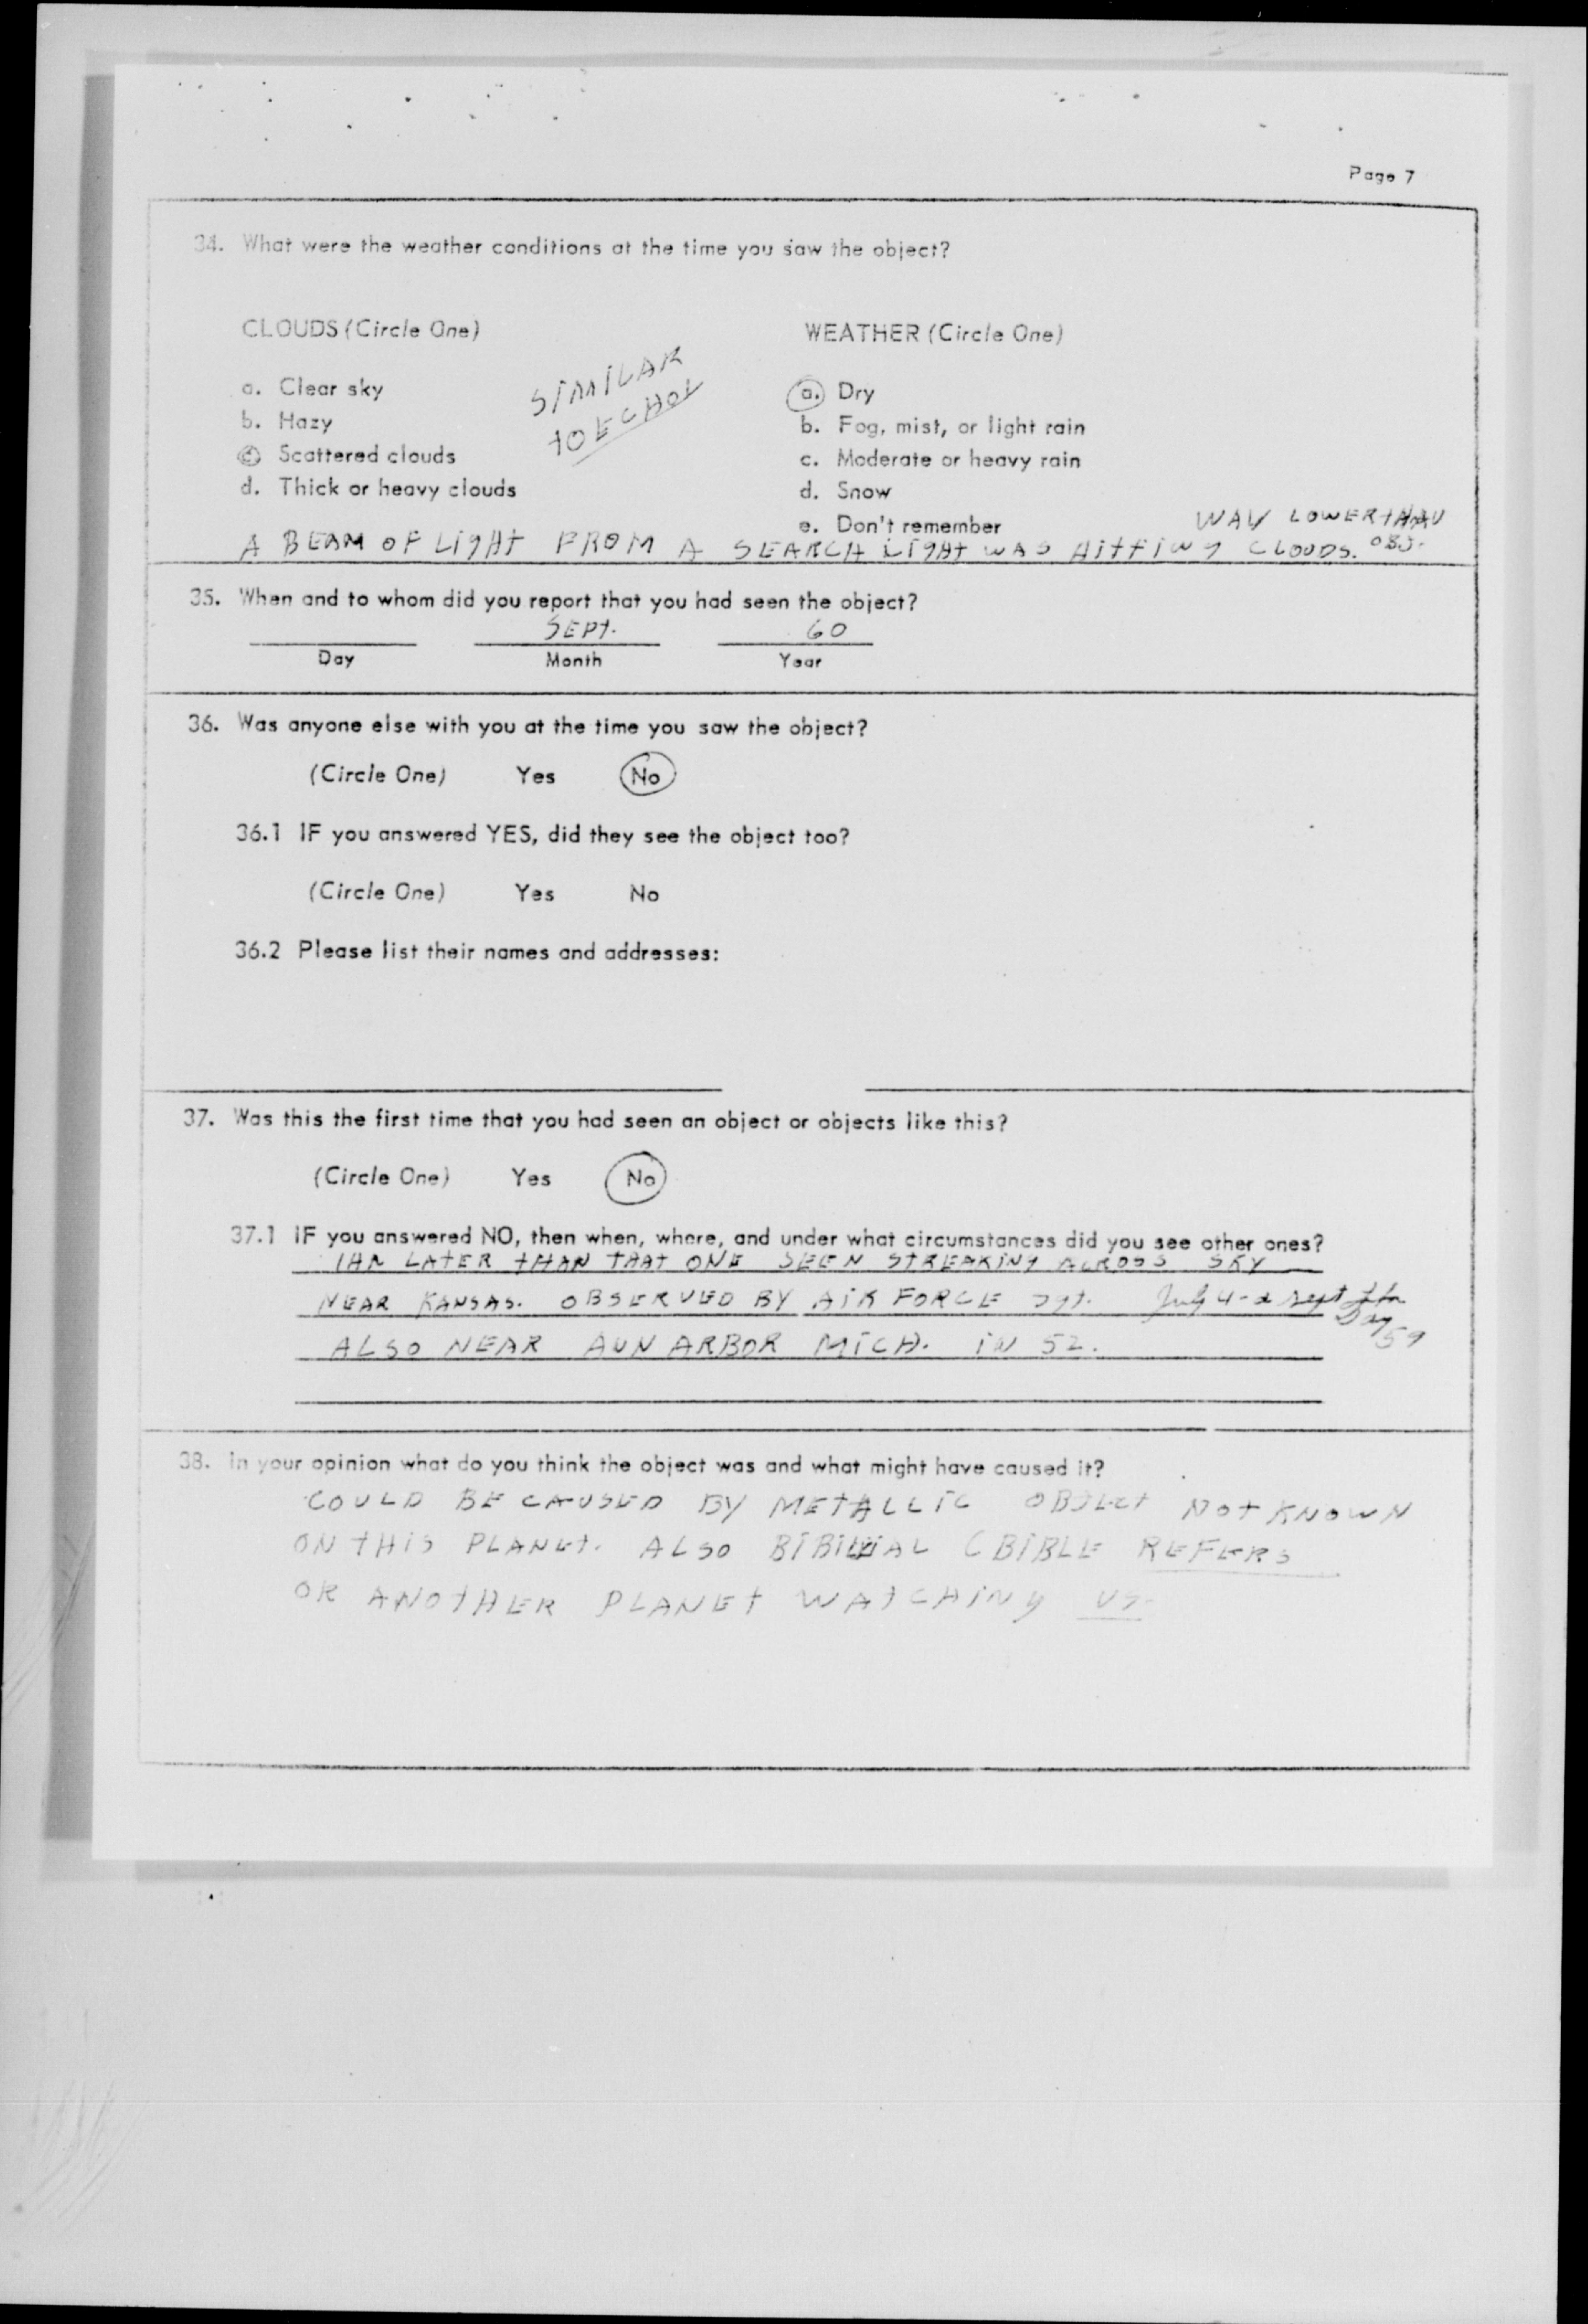 Page 7
34. What were the weather conditions at the time you saw the object?
CLOUDS (Circle One)
a. Clear sky
b. Hazy
c. Scattered clouds
d. Thick or heavy clouds
SIMILAR
TO ECHO I
WEATHER (Circle One)
a. Dry
b. Fog, mist, or light rain
c. Moderate or heavy rain
d. Snow
e. Don't remember
WAY LOWER THAN
A BEAM OF LIGHT FROM A SEARCH LIGHT WAS HITTING CLOUDS. OBJ.
35. When and to whom did you report that you had seen the object?
SEPT. 60
Day Month Year
36. Was anyone else with you at the time you saw the object?
(Circle One) Yes No
36.1 IF you answered YES, did they see the object too?
(Circle One) Yes No
36.2 Please list their names and addresses:
37. Was this the first time that you had seen an object or objects like this?
(Circle One) Yes No
37.1 IF you answered NO, then when, where, and under what circumstances did you see other ones?
1HR LATER THAN THAT ONE SEEN STREAKING ACROSS SKY
NEAR KANSAS. OBSERVED BY AIR FORCE Sgt. July 4 - Sept
Day 59
ALSO NEAR ANN ARBOR MICH. IN 52.
38. In your opinion what do you think the object was and what might have caused it?
COULD BE CAUSED BY METALLIC OBJECT NOT KNOWN
ON THIS PLANET. ALSO (BIBLE REFERS
OR ANOTHER PLANET WATCHING US.